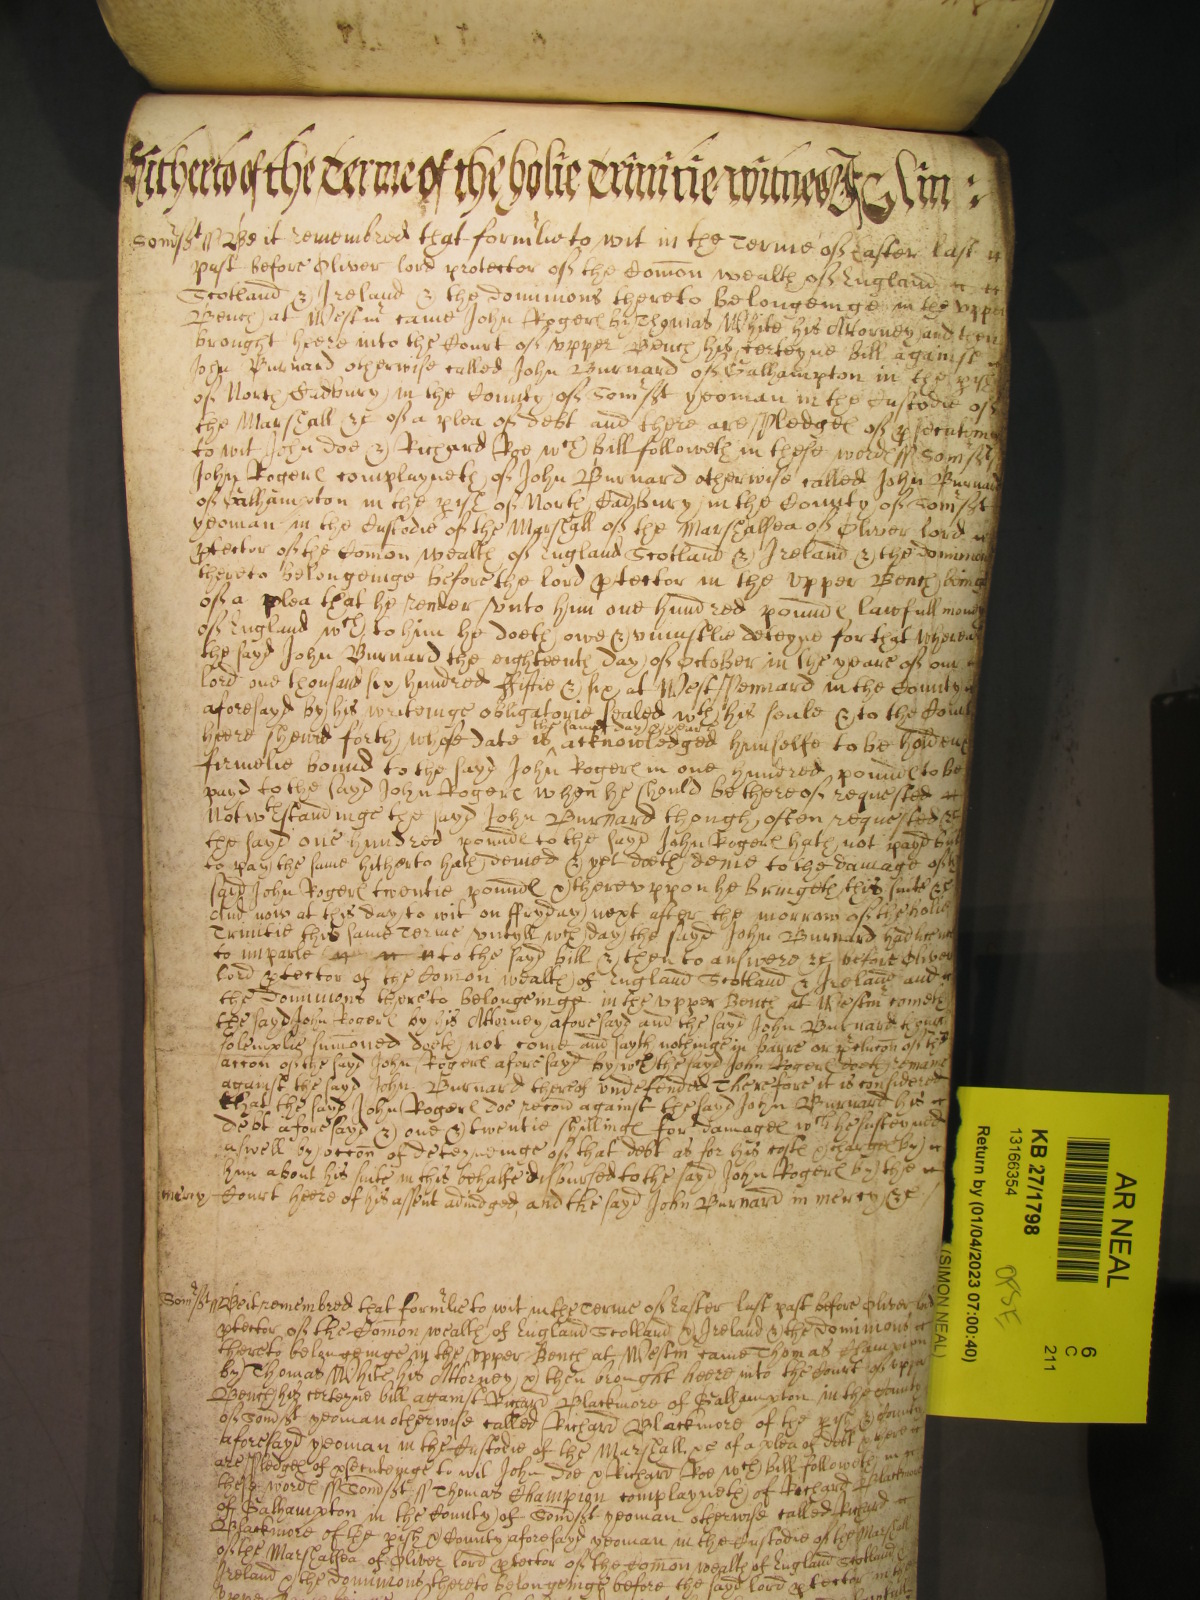 hitherto of the Terme of the holie Trinitie witnes
Somsst Be it remembred that formlie to wit in the Terme of Easter last
past before Oliver lord protector of the Comon wealth of England
Scotland & Ireland & the dominions thereto belongeinge in the upper
Bench at Westm came John Rogers by Thomas White his Attorney and then
brought heere into the Court of upper Bench his certeyne bill against
John Burnard otherwise called John Burnard of Galhampton in the pish
of North Cadbury in the County of Somsst yeoman in the Custodie of
the Marshall &c of a plea of debt and there are pledges of psecution
to wit John Doe & Richard Roe wch bill followeth in these words Somsst
John Rogers complayneth of John Burnard otherwise called John Burnard
of Galhampton in the pish of North Cadbury in the County of Somsst
yeoman in the Custodie of the Marshall of the Marshallsea of Oliver lord
ptector of the Comon wealth of England Scotland & Ireland & the dominions
thereto belongeinge before the lord ptector in the upper Bench beinge
of a plea that he render unto him one hundred pounds lawfull money
of England wch to him he doeth owe & uniustlie deteyne for that whereas
the sayd John Burnard the eighteenth day of October in the yeare of our
lord one thousand six hundred Fiftie & six at West Pennard in the County
aforesayd by his writeinge obligatorie sealed wth his seale & to the Court
heere shewed forth whose date is the same day & yeare acknowledged himselfe to be holden &
firmelie bound to the sayd John Rogers in one hundred pounds to be
payd to the sayd John Rogers when he should be thereof requested
Notwthstandinge the sayd John Burnard though often requested &c
the sayd one hundred pounds to the sayd John Rogers hath not payd but
to pay the same hitherto hath denied & yet doeth denie to the damage of the
said John Rogers twentie pounds & thereuppon he bringeth this suite &c
And now at this day to wit on Fryday next after the morrow of the holie
Trinitie this same Terme untyll wch day the sayd John Burnard had licence
to imparle to the sayd bill & then to answere &c before Oliver
lord ptector of the Comon wealth of England Scotland & Ireland and
the Dominions thereto belongeinge in the upper Bench at Westm cometh
the sayd John Rogers by his Attorney aforesayd and the sayd John Burnard though
solemplie sumoned doeth not come and sayth notheinge in barre or pclucon of the
accon of the sayd John Rogers aforesayd by wch the sayd John Rogers doeth remaine
against the sayd John Burnard thereof undefended Therefore it is considered
that the sayd John Rogers doe recov against the sayd John Burnard his
debt aforesayd & one & twentie shillings for damages wch he susteyned
aswell by occon of deteyneinge of that debt as for his costs & charges by
him about his suite in this behalfe disbursed to the sayd John Rogers by the
mercy Court heere of his assent adiudged, and the sayd John Burnard in mercy &c
Somsst Be it remembred that formlie to wit in the Terme of Easter last past before Oliver lord
ptector of the Comon wealth of England Scotland & Ireland & the Dominions
thereto belongeinge in the upper Bench at Westm came Thomas Champion
by Thomas White his Attorney & then brought heere into the Court of upper
Bench his certeyne bill against Richard Blackmore of Galhampton in the County
of Somsst yeoman otherwise called Richard Blackmore of the pish & County
aforesayd yeoman in the Custodie of the Marshall &c of a plea of debt & there
are pledges of psecuteinge to wit John Doe & Richard Roe wch bill followeth in
these words Somsst Thomas Champion complayneth of Richard Blackmore
of Galhampton in the County of Somsst yeoman otherwise called Richard
Blackmore of the pish & County aforesayd yeoman in the Custodie of the Marshall
of the Marshallsea of Oliver lord ptector of the Comon wealth of England Scotland &
Ireland & the Dominions thereto belongeinge before the sayd lord ptector in the
AR NEAL
KB 27/1798
13166354
Return by (01/04/2023 07:00:40)
(SIMON NEAL)
6
C
211